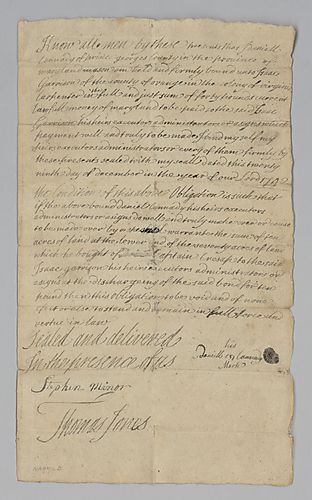 Know all men by these presents that I Daniell
Cannady of prince georges County in the province of
maryland mason am held and firmly bound unto Isaac
Garrison of the County of orange in the Colony of virginia
Carpenter in the full and just sum of forty pounds Current
Lawfull money of maryland to be paid to the said Isaac
Garrison his heirs executors administrators or assigns to which
payment well and truly to be made I bind my self my
heirs executors administrators or every of them firmly by
these presents sealed with my seall dated this twenty
ninth day of december in the year of our Lord 1742
the Condition of this above Obligation is such that
if the above bound daniell Cannady his heirs executors
administrators or assigns do well and truly make over or cause
to be made over by a warrant the sum of ten
acres of land at the lower end of the seventy acres of land
which he bought of Captain Cresap to the said
Isaac garrison his heirs executors administrators or
assigns at the discharging of the said bond for ten
pounds then this obligation to be void and of none
effect or else to stand and remain in full force and
vertue in law
Sealed and delivered
In the presence of us
his
Daniell Cannady
Mark
Stephen Minor
Thomas Jones